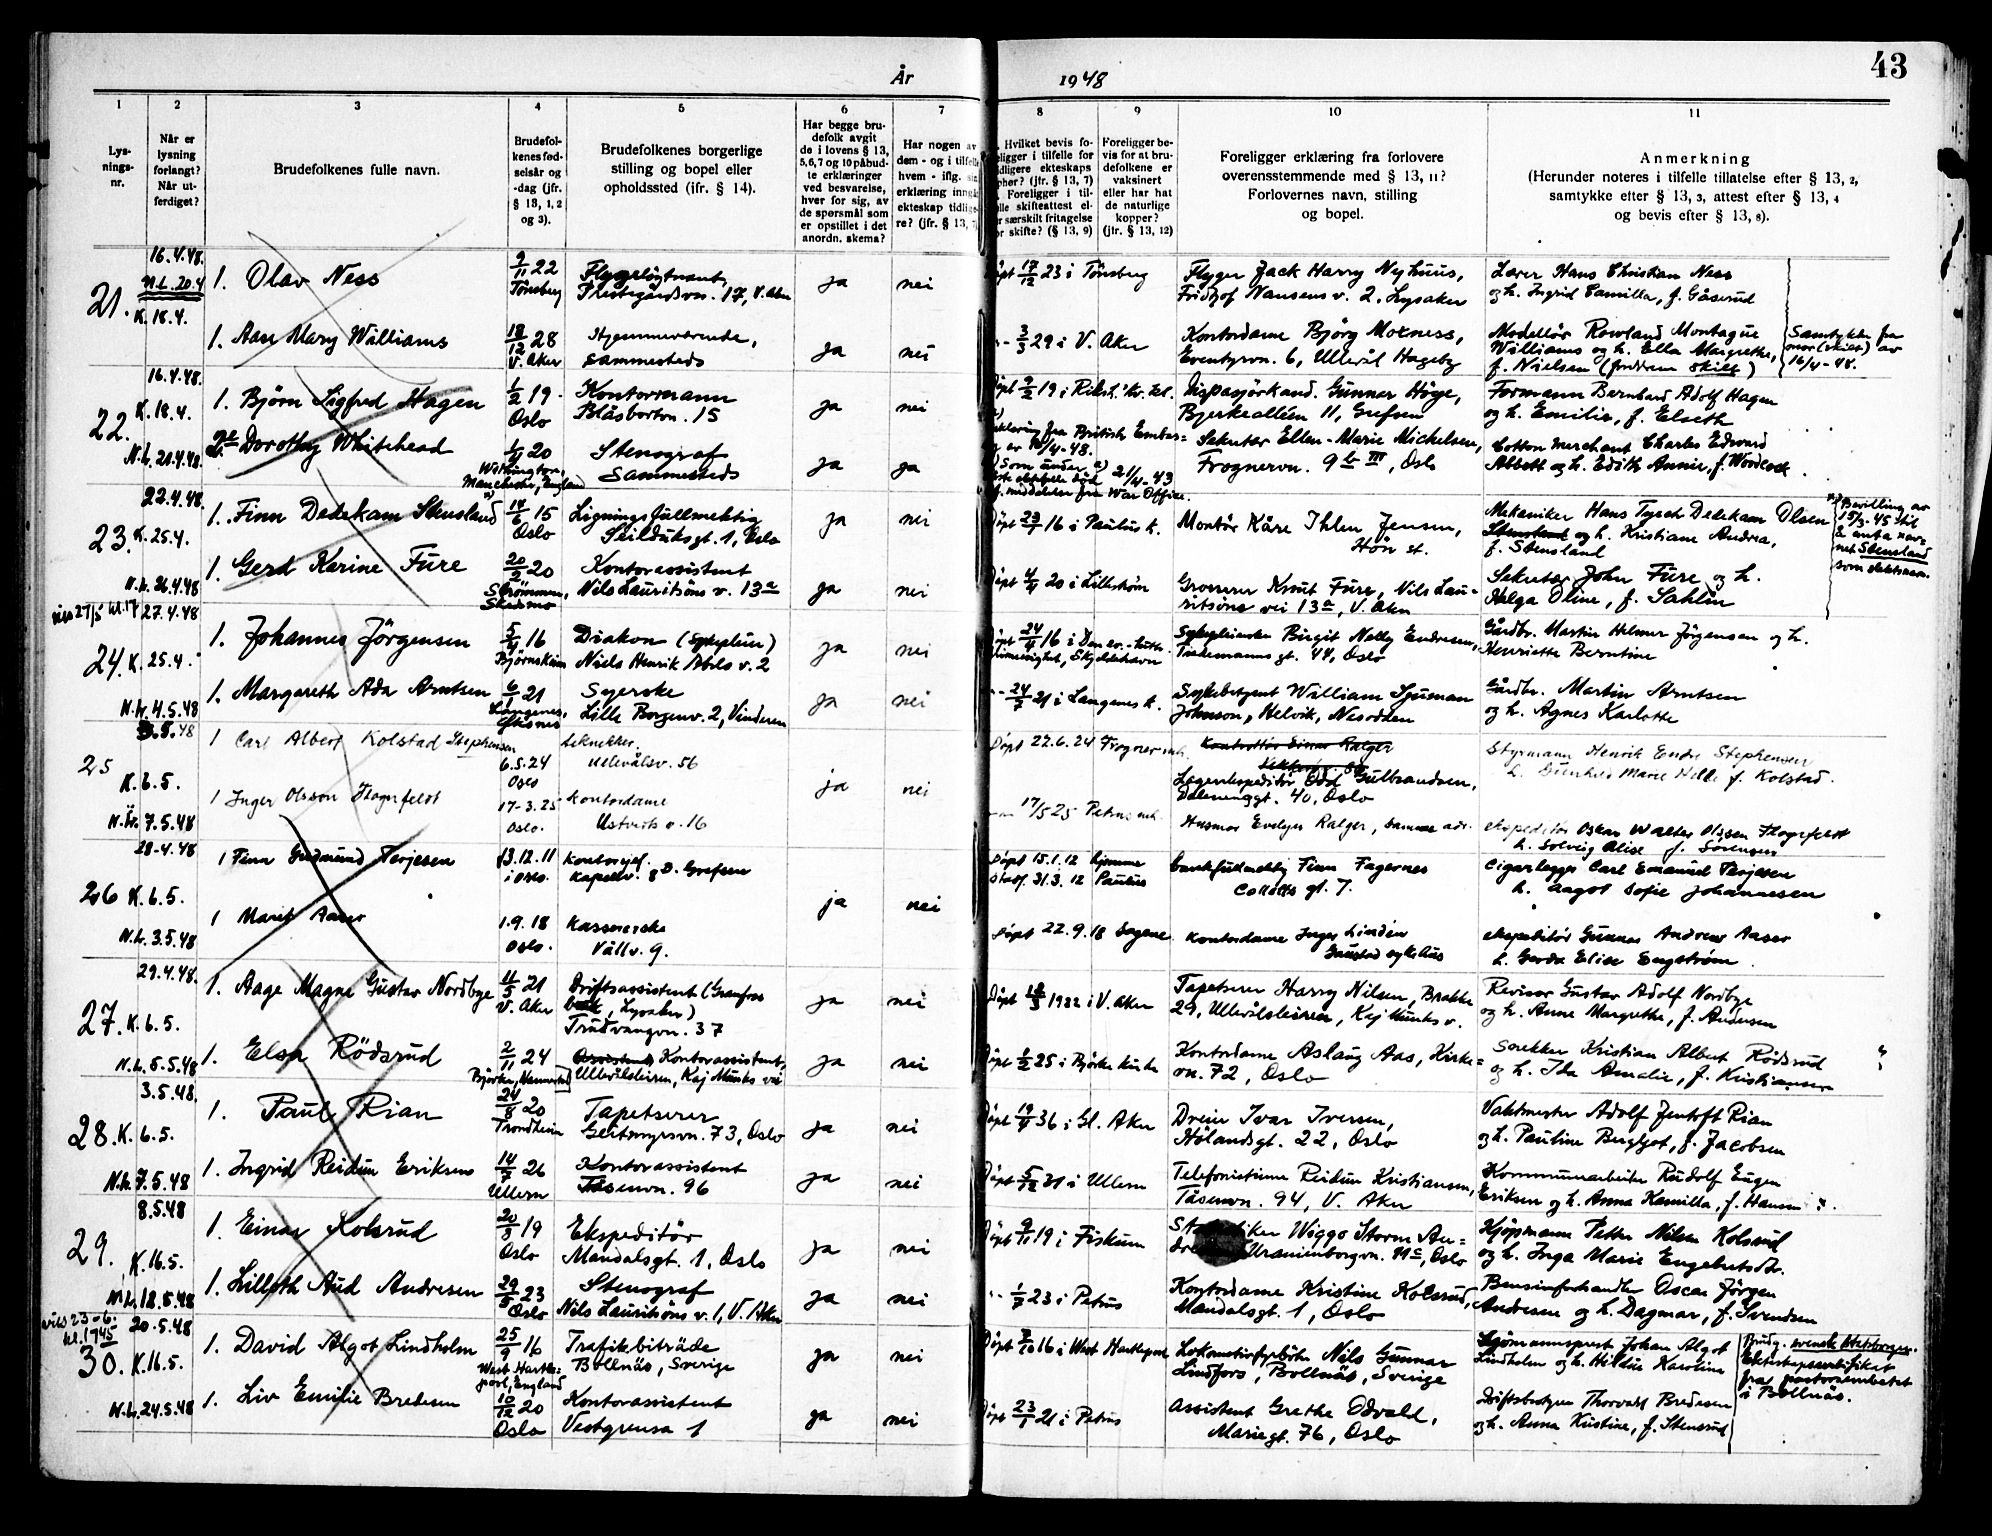 År 1948
43
1
2
3
4
5
6
7
8
9
10
11
Lys-
nings-
nr.
Når er
lysning
forlangt?
Når ut-
ferdiget?
Brudefolkenes fulle navn.
Brudefol-
kenes fød-
selsår og
-dag (jfr.
§ 13, 1, 2
og 3).
Brudefolkenes borgerlige
stilling og bopel eller
opholdssted (ifr. § 14).
Har begge bru-
defolk avgit
de i lovens § 13,
5,6,7 og 10 påbud-
te erklæringer
ved besvarelse,
hver for sig, av
de spørsmål som
er opstillet i det
anordn. skema?
Har nogen av
dem - og i tilfelle
hvem - iflg. sin
erklæring inngåt
ekteskap tidlige-
re? (jfr. § 13, 7)
Hvilket bevis fo-
religger i tilfelle for
tidligere ekteskaps
ophør? (jfr. § 13, 7)
Foreligger i til-
felle skifteattest el-
er særskilt fritagelse
or skifte? (§ 13, 9)
Foreligger be-
vis for at bru-
defolkene er
vaksinert
eller har hat
de naturlige
kopper?
(jfr. § 13, 12)
Foreligger erklæring fra forlovere
overensstemmende med § 13, 11?
Forlovernes navn, stilling
og bopel.
Anmerkning
(Herunder noteres i tilfelle tillatelse efter § 13, 2,
samtykke efter § 13, 3, attest efter § 13, 4
og bevis efter § 13, 8).
21.
16.4.48.
N.L. 20.4
K. 18.4.
1. Olav Ness
9/11 22
Tönsberg
17, V. Aker
ja
nei
Döpt 17/12 23 i Tönsberg
Flyger Jack Harry Nyhuus,
Fridtjof Nansens v. 2, Lysaker
Lærer Hans Christian Ness
og h. Ingrid Camilla, f. Gåserud
1. Aase Mary Williams
18/12 28
V. Aker
Hjemmeværende,
sammesteds
ja
nei
3/3 29 i V. Aker
Kontordame Björg Moxness,
Eventyrvn. 6, Ullevål Hageby
Modellör Rowland Montague
Williams og h. Ella Margrethe,
f. Nielsen (foreldrene skilt)
Samtykke fra
mor (skilt) av
16/4-48.
22.
16.4.48.
K. 18.4.
N.L. 21.4.48.
1. Björn Sigfred Hagen
1/2 19
Oslo
Kontormann
Blåsbortvn. 15
ja
nei
Döpt 9/2 19 i Riksh.'kv.kl.
Dispasjörkand. Gunnar Höge,
Bjerkealléen 11, Grefsen
Formann Bernhard Adolf Hagen
og h. Emilie, f. Elseth
2. Dorothy Whitehead
20
Manchester, England
Stenograf
Sammesteds
ja
ja
fra British Embas-
21/4-43
fra War Office.
Sekretær Ellen-Marie Michelsen,
Frognervn. 9b III, Oslo
Cotton merchant Charles Edward
Abbott og h. Edith Annie, f. Woodcock
23.
22.4.48.
K. 25.4.
N.L. 26.4.48
1. Finn Dedekam Stensland
14/6 15
Oslo
Ligningsfullmektig
Seilduksgt. 1, Oslo
ja
nei
Döpt 23/7 16 i Paulus k.
Montör Kåre Ihlen Jensen,
Hön st.
Mekaniker Hans Tyrch Dedekam Olsen
Stensland og h. Kristiane Andrea,
f. Stensland
Bevilling av
15/3-45 til
å anta nav-
net Stensland
som slektsnavn.
1. Gerd Karine Fure
20/2 20
Strömmen,
Skedsmo
Kontorassistent
Nils Lauritsöns v. 13a
ja
nei
Döpt 4/4 20 i Lilleström
Grosserer Knut Fure, Nils Lau-
ritsöns vei 13a, V. Aker
Sekretær John Fure og h.
Helga Oline, f. Sahlin
24.
27.4.48
K. 25.4.
N.L. 4.5.48
1. Johannes Jörgensen
5/4 16
Diakon (Sykepleier)
Niels Henrik Abels v. 2
ja
nei
Döpt 24/4 16 i Den ev.-luth.
Sykepleierske Birgit Nelly Endresen,
Tidemannsgt. 44, Oslo
Gårdbr. Martin Helmer Jörgensen og h.
Henriette Berntine
1. Margareth Ada Arntsen
6/1 21
Langenes,
Öksnes
Syerske
Lille Borgenv. 2, Vinderen
ja
nei
21 i Langenes k.
Sykebetjent William Sjuman
Johnson, Helvik, Nesodden
Gårdbr. Martin Arntsen
og h. Agnes Karlotte
25
K. 6.5.
7.5.48
1 Carl Albert Kolstad Stephensen
6.5.24
Oslo
Tekniker.
Ullevålsv. 56
ja
nei
Döpt 22.6.24 Frogner mh.
Kontrollör Einar Ralger
Lagerekspeditör Odd Gulbrandsen,
Dælenenggt. 40, Oslo
Styrmann Henrik Endre Stephensen
h. Gunhild Marie Helli f. Kolstad.
1 Inger Olsson Hagnfeldt
17-3.25
Oslo.
Kontordame
Ustveits v. 16
17/5 25 Petrus mh.
Husmor Evelyn Ralger, samme adr.
ekspeditör Oskar Walter Olsson Hagnfeldt
h. Solveig Alise f. Sörensen
26
28-4.48
K. 6.5.
N.L. 3.5.48
1 Finn Gudmund Terjesen
13.12.11
i Oslo.
Kontorsjef.
Kapellv. 8D. Grefsen
ja
nei
Döpt 15.1.12 hjemme
stadf. 31.3.12 Paulus
bankfullmektig Finn Fagernes
Colletts gt. 7.
Cigarlegger Carl Emanuel Terjesen
h. Aagot Sofie Johannesen
1 Marit Aaser
1.9.18
Oslo.
Kassererske
Vällv. 9.
Döpt 22.9.18 Sagene
Kontordame Inger Linden
Gaustad sykehus
ekspeditör Gunnar Andreas Aaser
h. Gerda Elise Engström.
27.
29.4.48.
K. 6.5.
N.L. 5.5.48
1. Aage Magne Gustav Nordbye
11/5 21
V. Aker
Driftsassistent (Granfoss
Bruk, Lysaker)
Trudvangvn. 37
ja
nei
Döpt 18/3 1922 i V. Aker
Tapetserer Harry Nilsen, Brakke
29, Ullevålsleiren, Kaj Munks v.
Revisor Gustav Adolf Nordbye
og h. Anne Margrethe, f. Andersen
1. Elsa Rödsrud
2/11 24
Assistent Kontorassistent,
Ullevålsleiren, Kaj Munks vei
ja
nei
Döpt 1/2 25 i Bjerke kirke
Kontordame Aslaug Aas, Kirke-
vn. 72, Oslo
Snekker Kristian Albert Rödsrud
og h. Ida Amalie, f. Kristiansen
28.
3.5.48.
K. 6.5.
N.L. 7.5.48
1. Paul Rian
24/8 20
Trondheim
Tapetserer
Geitmyrsvn. 73, Oslo
ja
nei
Döpt 19/4 36 i Gl. Aker
Dreier Ivar Iversen,
Hölandsgt. 22, Oslo
Vaktmester Adolf Jentoft Rian
og h. Pauline Bergljot, f. Jacobsen
1. Ingrid Reidun Eriksen
14/7 26
Ullern
Kontorassistent
Tåsenvn. 96
ja
nei
Döpt 5/12 31 i Ullern
Telefonistinne Reidun Kristiansen,
Tåsenvn. 94, V. Aker
Kommunearbeider Rudolf Eugen
Eriksen og h. Anna Kamilla, f. Hansen
29.
8.5.48
K. 16.5.
N.L. 18.5.48
1. Einar Kolsrud
20/8 19
Oslo
Ekspeditör
Mandalsgt. 1, Oslo
ja
nei
Döpt 9/11 19 i Fiskum
Wiggo Storm An-
Uranienborgvn. 11c, Oslo
Kjöpmann Petter Nilsen Kolsrud
og h. Inga Marie Engebretsdtr.
1. Lilleth Aud Andresen
29/5 23
Oslo
Stenograf
Nils Lauritsöns v. 1, V. Aker
ja
nei
1/7 23 i Petrus
Kontordame Kristine Kolsrud,
Mandalsgt. 1, Oslo
Bensinforhandler Oscar Jörgen
Andresen og h. Dagmar, f. Svendsen
vies 23-6.
kl. 1745
30.
20.5.48
K. 16.5.
N.L. 24.5.48
1. David Algot Lindholm
25/9 16
West Hartle-
pool, England
Trafikbiträde
Bollnäs, Sverige
ja
nei
Döpt 16 i West Hartlepool
Lokomotivfyrböter Nils Gunnar
Lindfors, Bollnäs, Sverige
Sjömannsprest Johan Algot
Lindholm og h. Hildur Karolina
Brudg. svensk statsborger.
Ekteskapscertifikat
fra pastorsembetet
i Bollnäs.
1. Liv Emilie Bredesen
10/12 20
Oslo
Kontorassistent
Vestgrensa 1
ja
nei
Döpt 23/1 21 i Petrus
Assistent Grethe Odvald,
Mariegt. 76, Oslo
Driftsbestyrer Thorvald Bredesen
og h. Anna Kristine, f. Stensrud